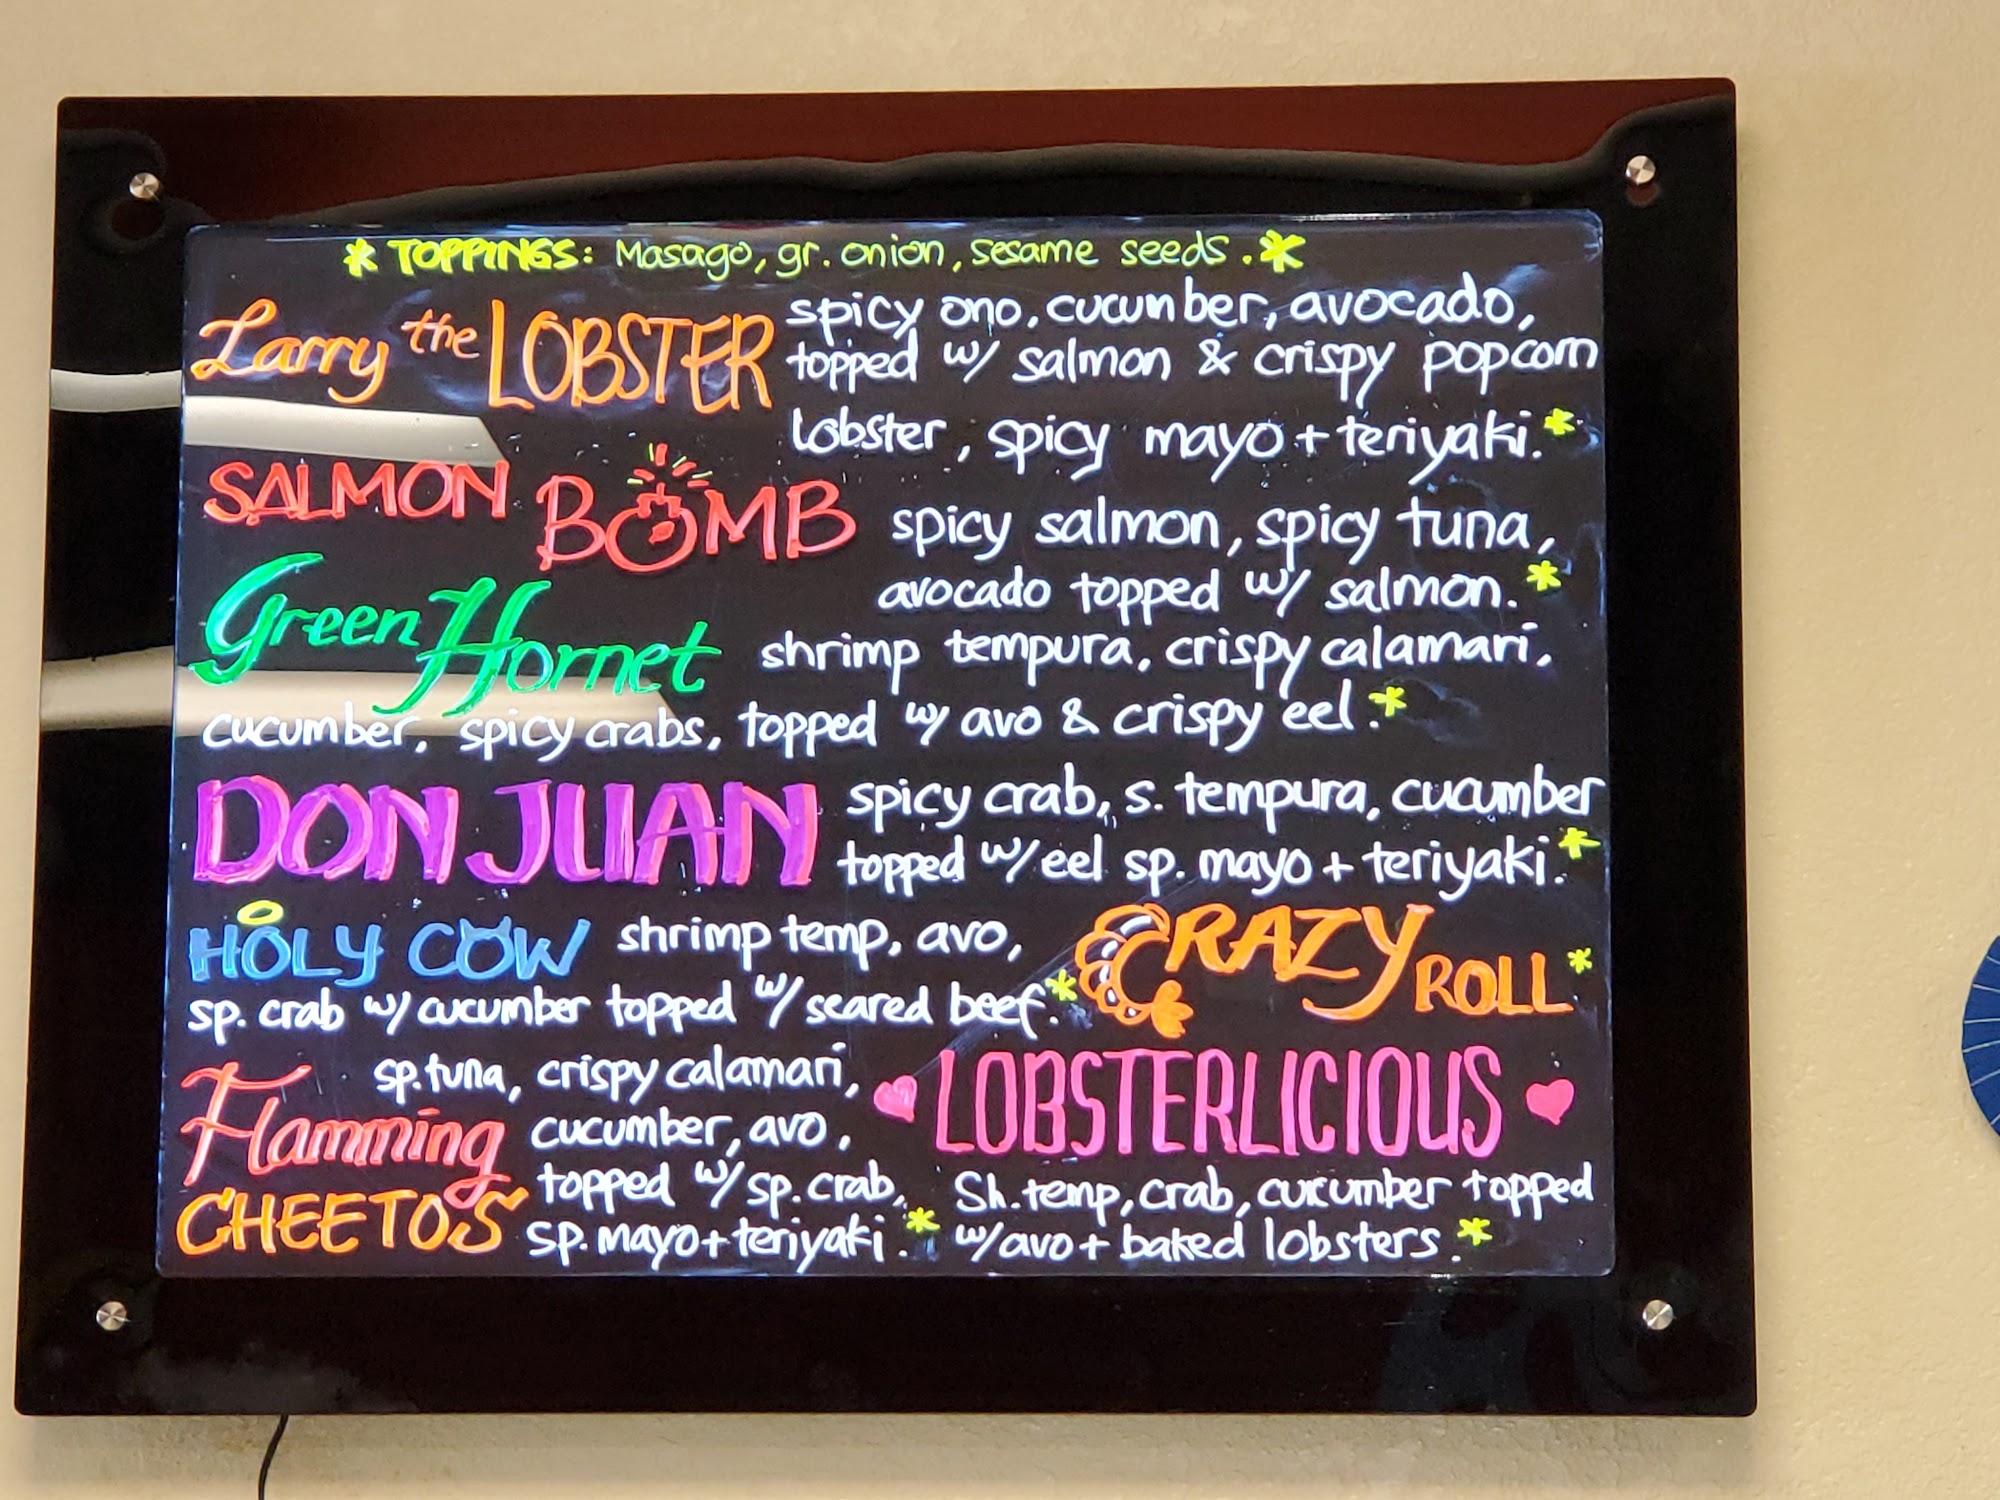 * TOPPINGS: Masago, gr. onion, sesame seeds. *
Larry the LOBSTER spicy ono, cucumber, avocado,
topped w/ salmon & crispy popcorn
lobster, spicy mayo + teriyaki. *
SALMON BOMB spicy salmon, spicy tuna,
avocado topped w/ salmon. *
Green Hornet shrimp tempura, crispy calamari,
cucumber, spicy crabs, topped w/ avo & crispy eel. *
DON JUAN spicy crab, s. tempura, cucumber
topped w/ eel sp. mayo + teriyaki. *
HOLY COW shrimp temp, avo,
sp. crab w/ cucumber topped w/ seared beef. *
CRAZY ROLL *
Flamming CHEETOS
sp. tuna, crispy calamari,
cucumber, avo,
topped w/ sp. crab,
sp. mayo + teriyaki. *
LOBSTERLICIOUS
Sh. temp, crab, cucumber topped
w/ avo + baked lobsters. *